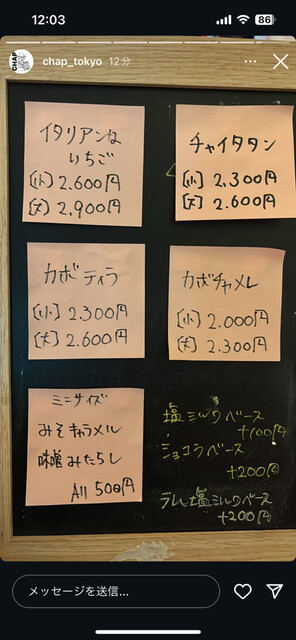 12:03
86
chap_tokyo 12分
イタリアンな
いちご
〔小〕2.600円
〔大〕2.900円
チャイタタン
〔小〕2.300円
〔大〕2.600円
カボティラ
〔小〕2.300円
〔大〕2.600円
カボチャメレ
〔小〕2.000円
〔大〕2.300円
ミニサイズ
みそキャラメル
味噌みたらし
All 500円
塩ミルクベース
+100円
ショコラベース
+200円
塩ミルクベース
+200円
メッセージを送信...